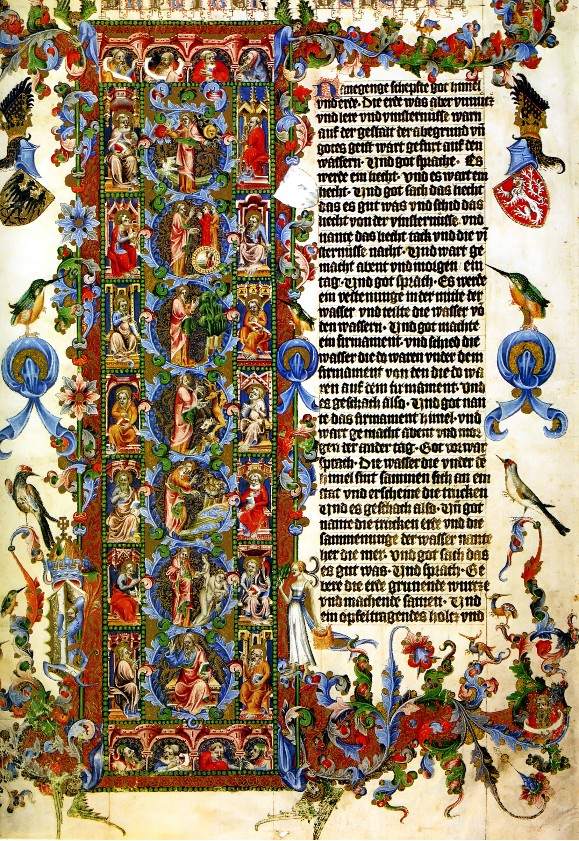 Anegenge schepfte got himel
vnd erde · Die erde was aber vnnucz
vnd lere vnd vinsternisse warn
auf der gestalt der abegrund vn̄
gotes geist wart gefurt auf den
wassern · Vnd got sprache · Es
werde ein liecht · Vnd es wart ein
liecht · Vnd got sach das liecht
das es gut was vnd schid das
liecht von der vinsternisse · vnd
nante das liecht tack vnd die vi
sternisse nacht · Vnd wart ge
macht abent vnd morgen ein
tag · Vnd got sprach · Es werde
ein vestenunge in der mitte der
wasser vnd teilte die wasser vō
den wassern · Vnd got machte
ein firmament · vnd schied die
wasser die do waren vnder dem
firmament von den die do wa
ren auf dem firmament · Vnd
es geschach also · Vnd got nan
te das firmament himel · vnd
wart gemacht abent vnd mor
gen der ander tag · Got vorwar
sprach · Die wasser die vnder de
himel sint sammen sich an ein
stat vnd erscheine die trucken
Vnd es geschach also · Vn̄ got
nante die trucken erde vnd die
sammenunge der wasser nante
her die mer · Vnd got sach das
es gut was · Vnd sprach · Ge
bere die erde grunende wurcze
vnd machende samen · Vnd
ein opfeltragendes holtz vnd